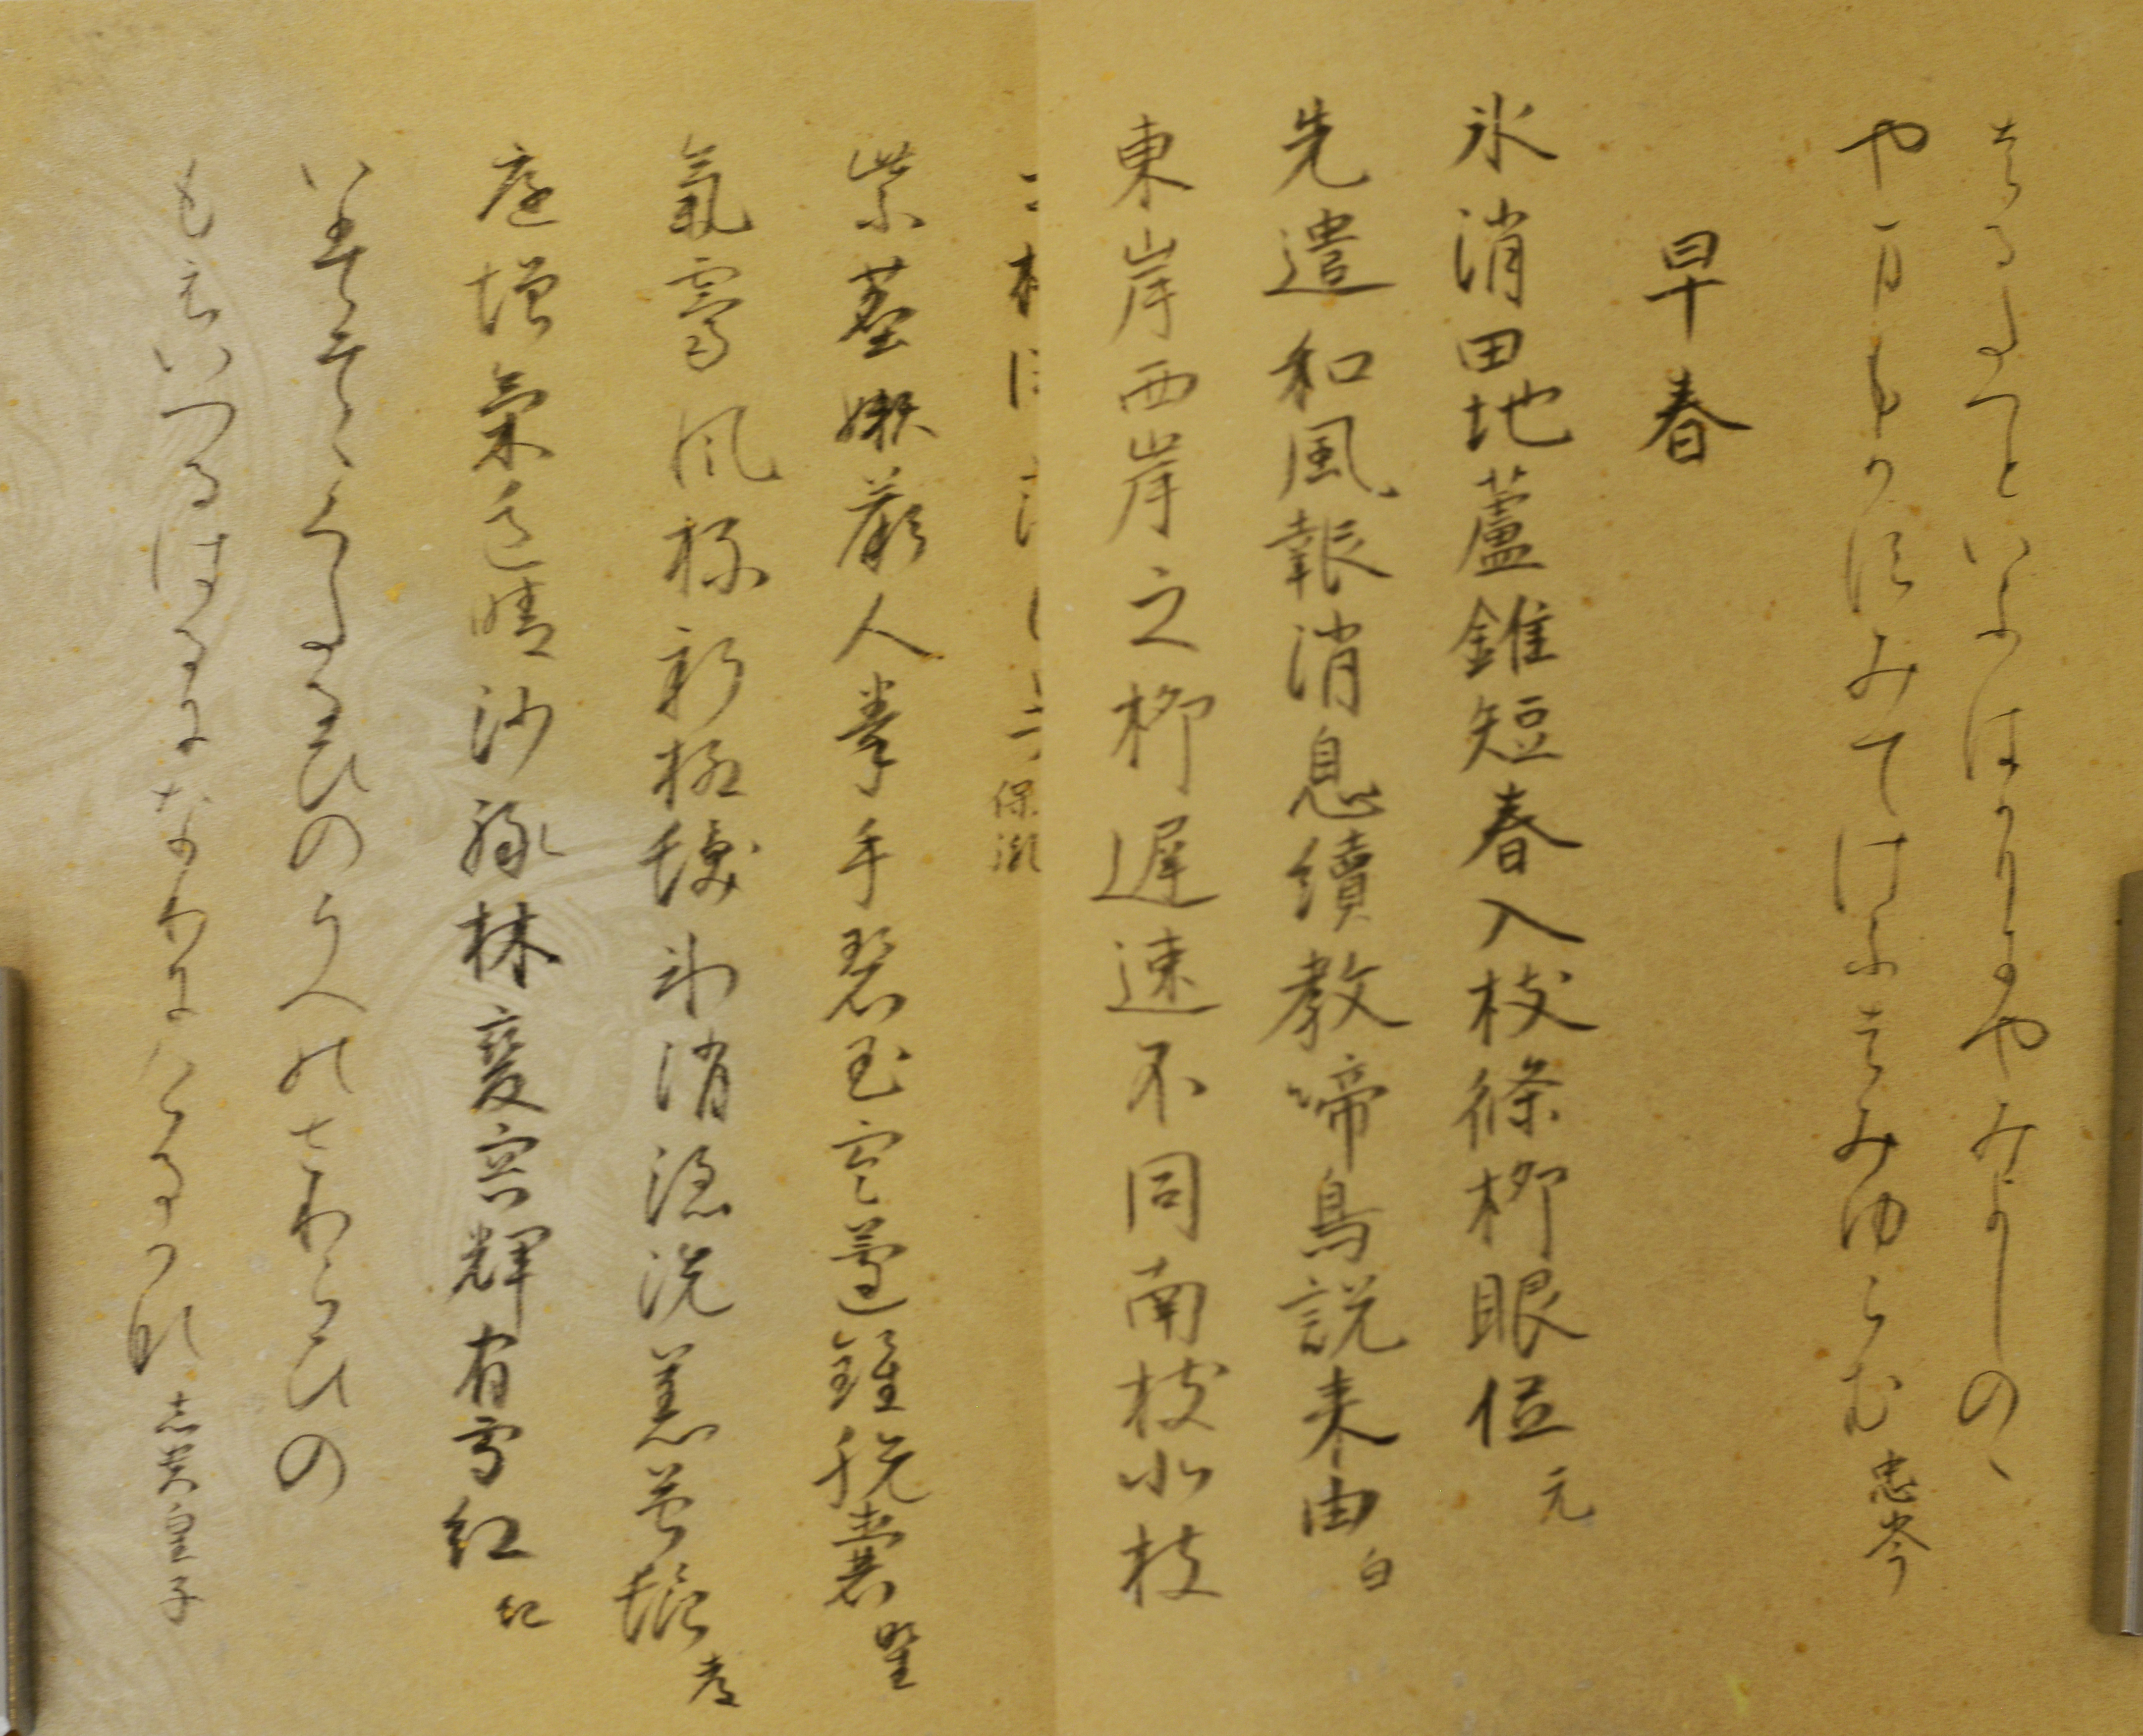 はるたつといふはかりにやみよしのゝ
やまもかすみてけふはみゆらむ 忠岑
早春
氷消田地蘆錐短春入枝條柳眼低 元
先遣和風報消息續教啼鳥説来由 白
東岸西岸之柳遅速不同南枝北枝
保胤
紫塵嫩蕨人拳手碧玉寒蘆錐脱嚢 野
氣霽風梳新柳髪氷消浪洗舊苔鬚 都
庭増氣色晴沙緑林變容輝宿雪紅 紀
いはそゝくたるひのうへのさわらひの
もえいつるはるになりにけるかな 志貴皇子